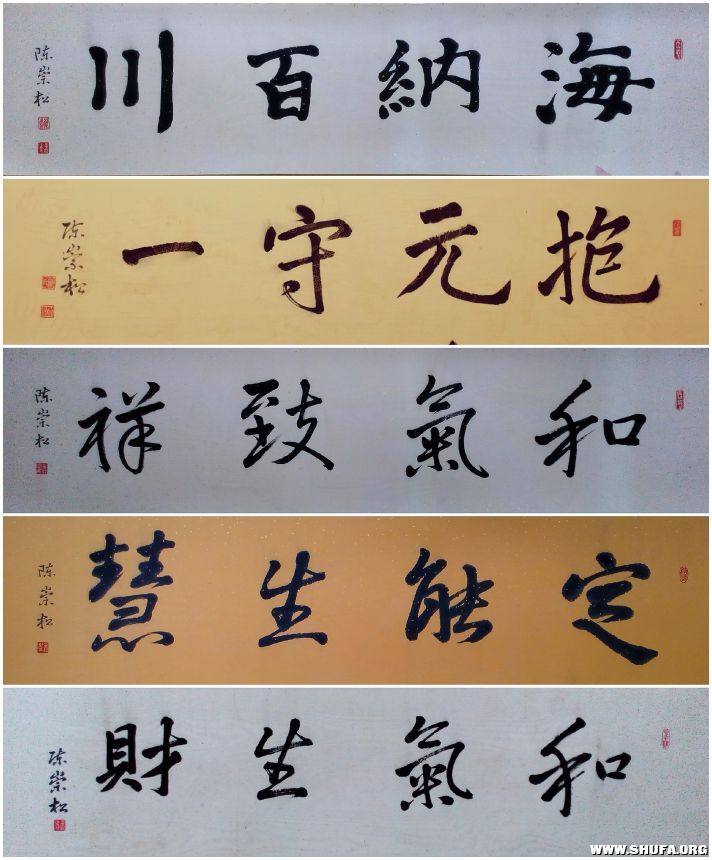 海納百川
陈崇松
抱元守一
陈崇松
和氣致祥
陈崇松
定能生慧
陈崇松
和氣生財
陈崇松
WWW.SHUFA.ORG